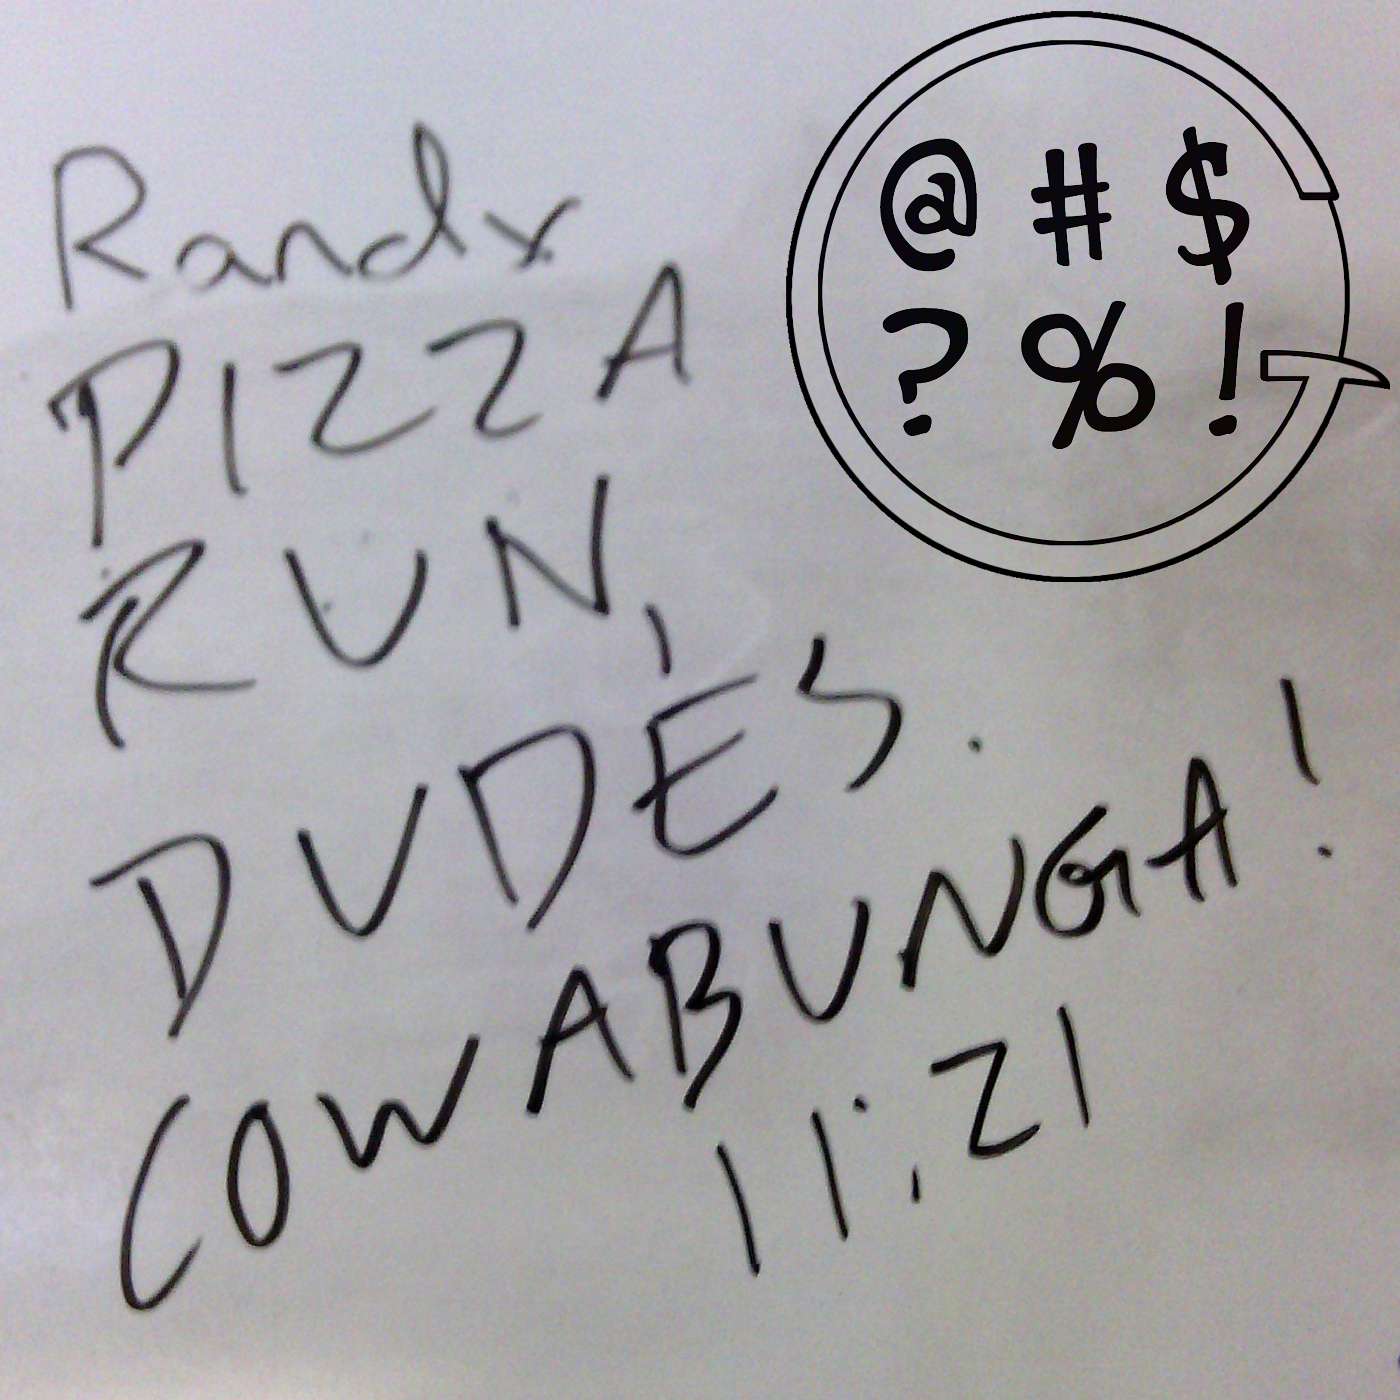 Randy
PIZZA
RUN,
DUDES.
COWABUNGA!
11:21
@#$
?%!